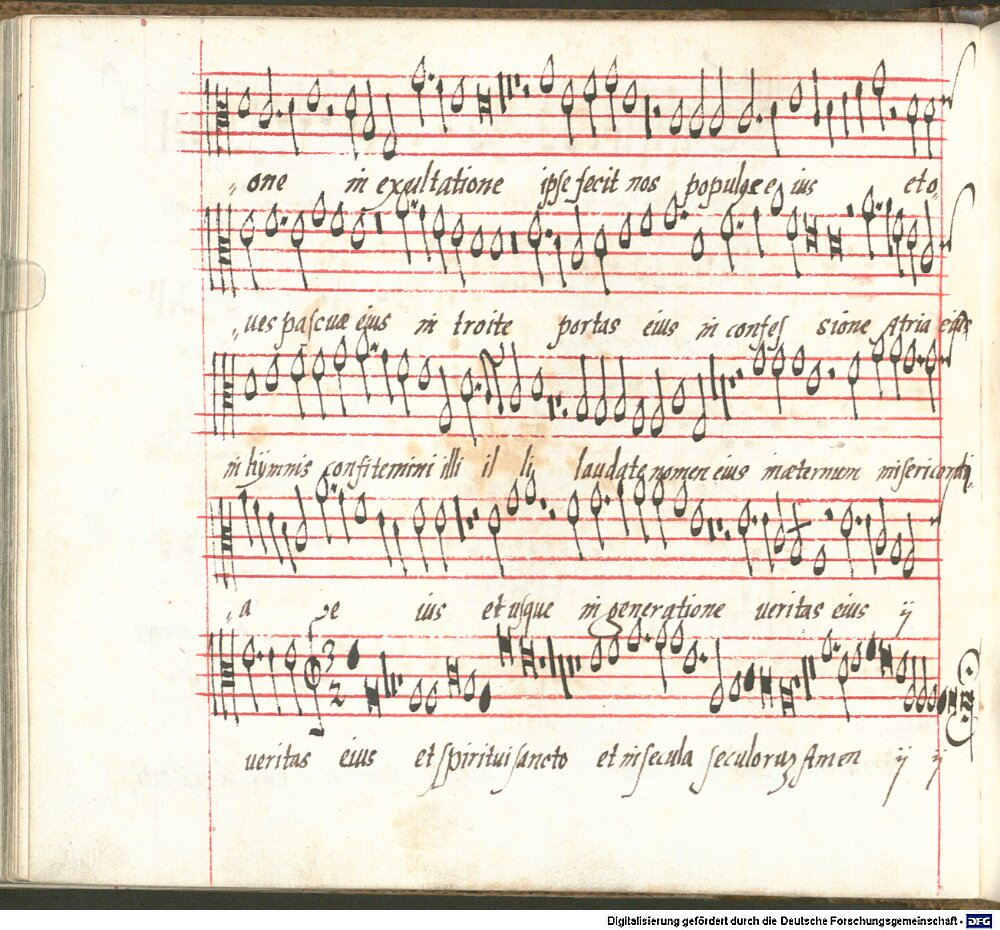 one in exultatione ipse fecit nos populus e ius et o
ves pascuæ eius in troite portas eius in confes sione Atria eius
in hÿmnis confitemini illi il li laudate nomen eius in æternum misericordi
a e ius et usque in generatione veritas eius ij
3
2
veritas eius et spiritui sancto et in secula seculoruz Amen ij ij
Digitalisierung gefördert durch die Deutsche Forschungsgemeinschaft - DFG